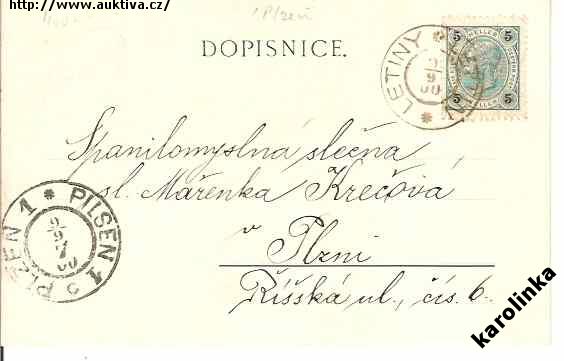 http://www.auktiva.cz/
Plzeň
DOPISNICE.
LETINY
9
9
00
5 HELLER 5
5 5
Spanilomyslná slečna
sl. Mařenka Krečová
v
Plzni
Říšská ul., čís. 6.
PLZEŇ 1 * PILSEN 1
9
9
7
00
karolinka